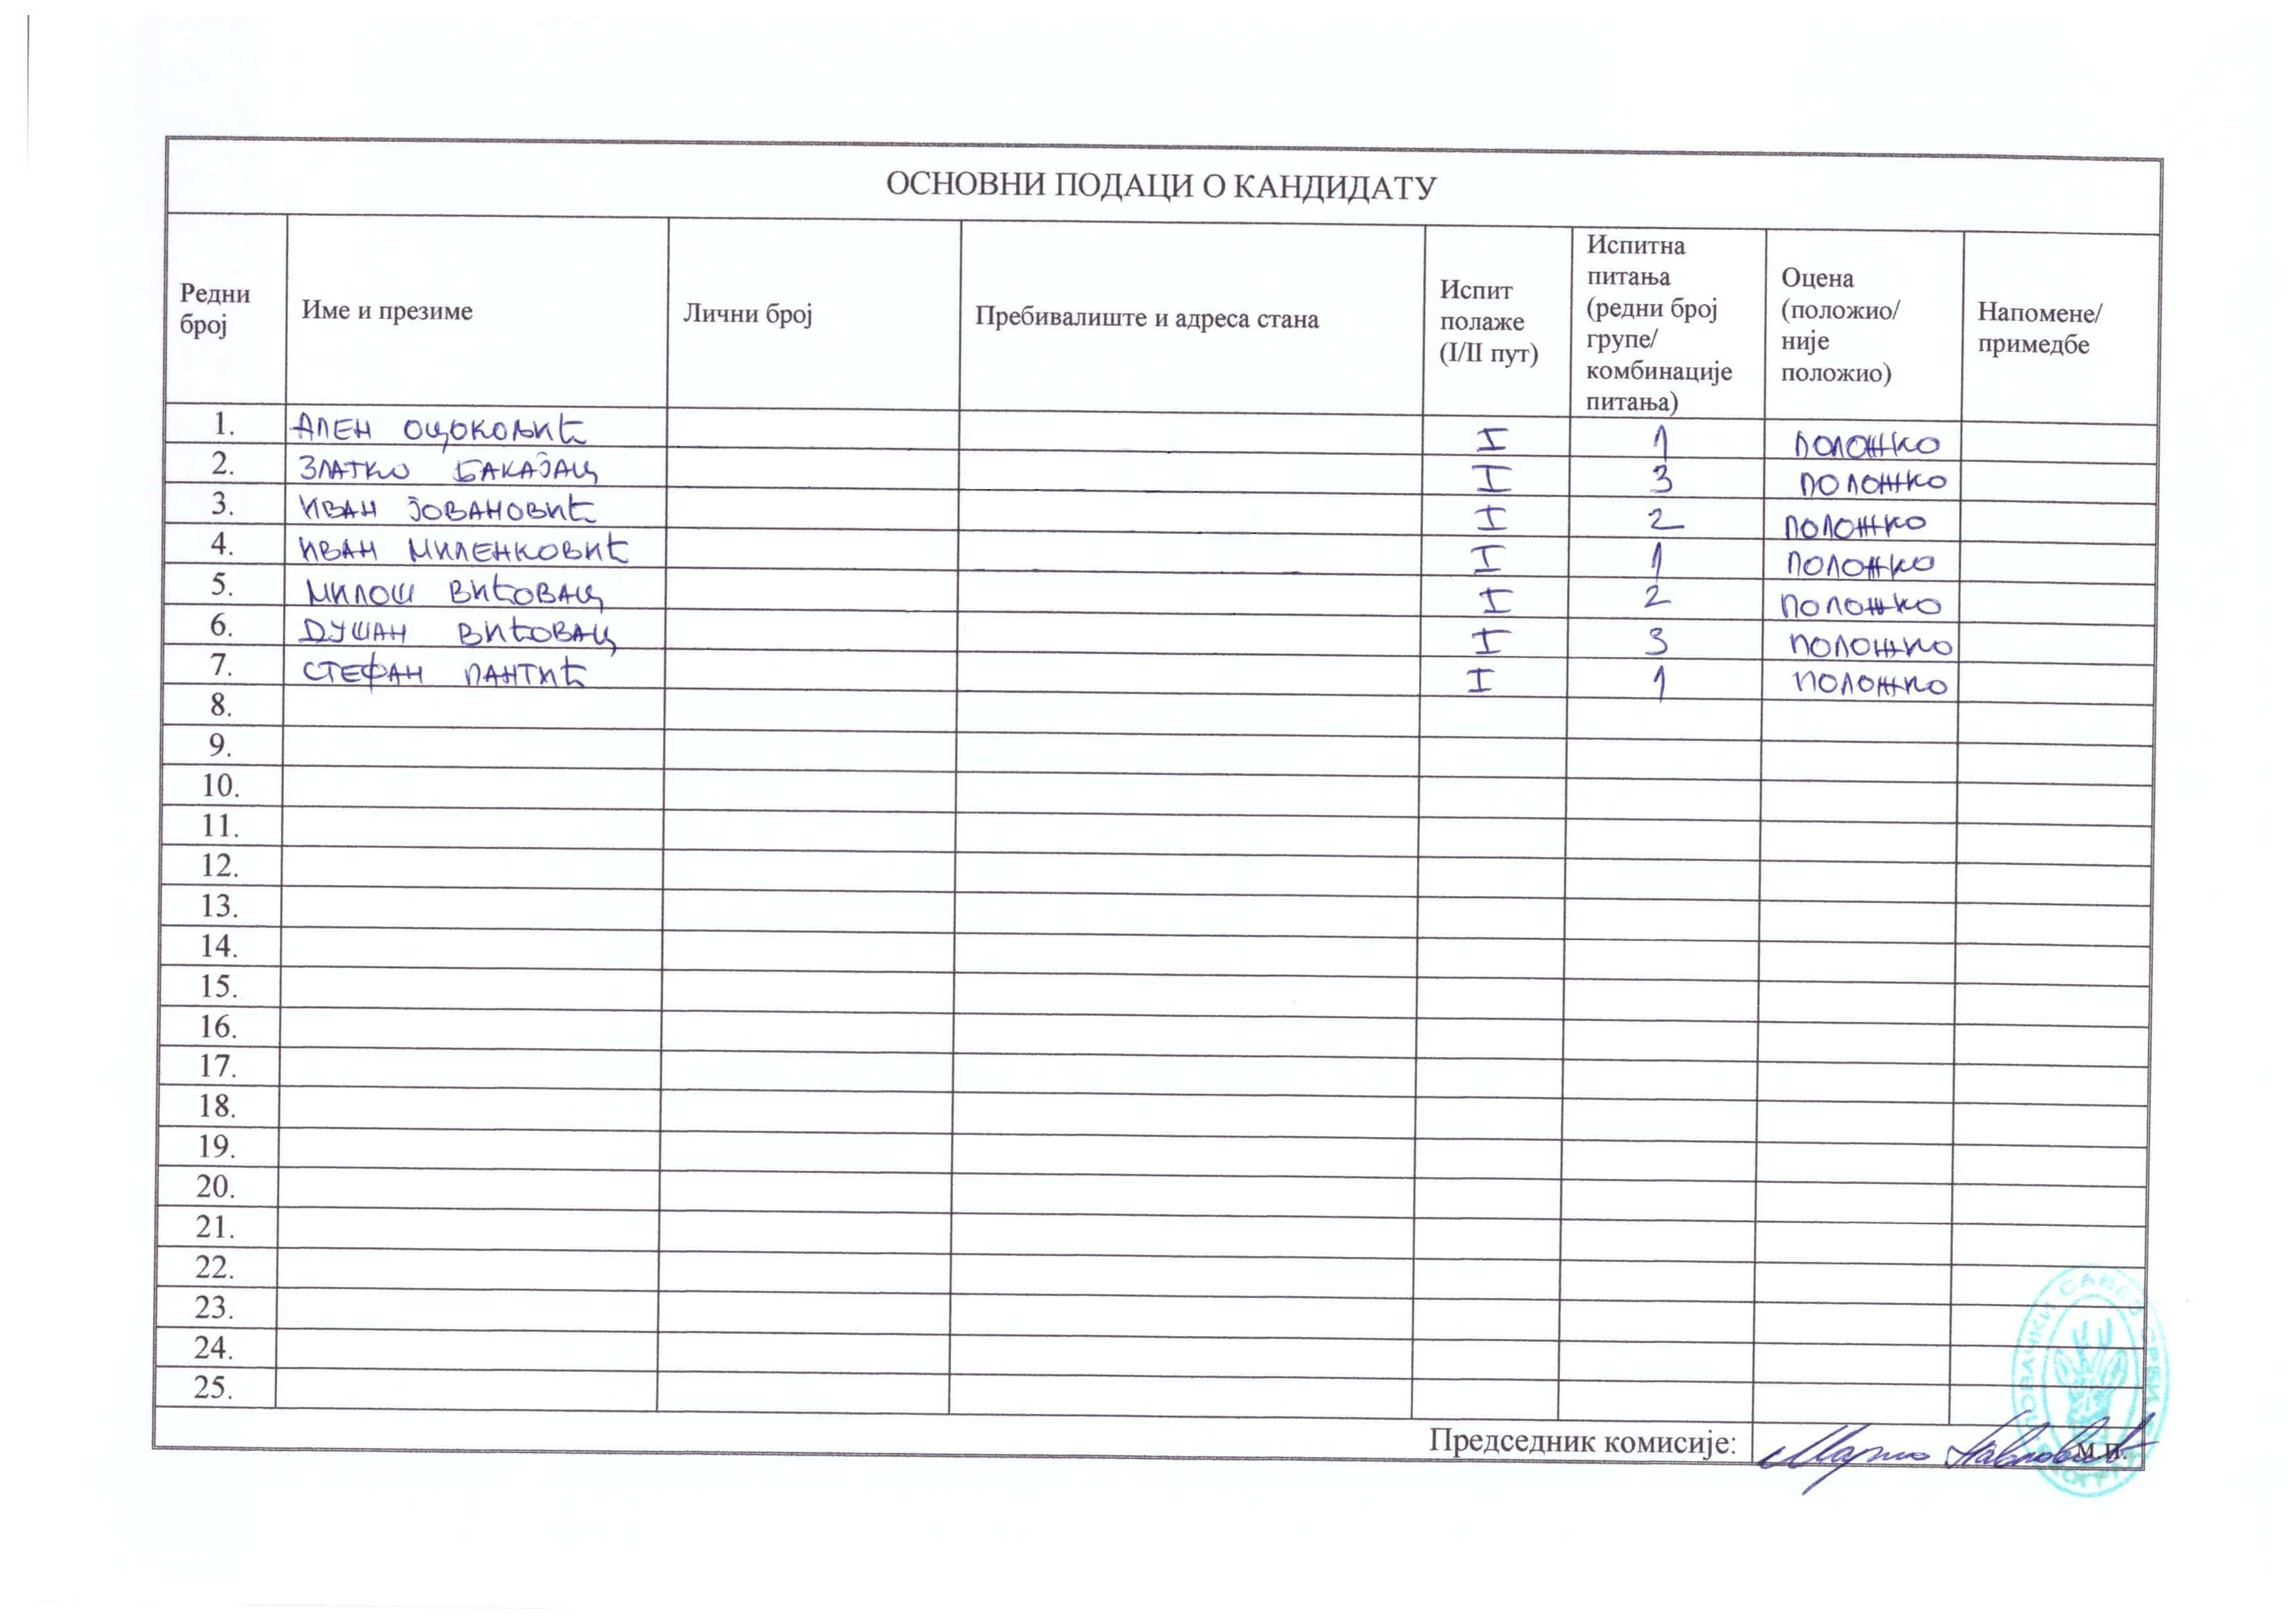 ОСНОВНИ ПОДАЦИ О КАНДИДАТУ
Редни број
Име и презиме
Лични број
Пребивалиште и адреса стана
Испит полаже (I/II пут)
Испитна питања (редни број групе/ комбинације питања)
Оцена (положио/ није положио)
Напомене/ примедбе
1. АЛЕН ОЦОКОЉИЋ I 1 ПОЛОЖИО
2. ЗЛАТКО БАКАЈАЦ I 3 ПОЛОЖИО
3. ИВАН ЈОВАНОВИЋ I 2 ПОЛОЖИО
4. ИВАН МИЛЕНКОВИЋ I 1 ПОЛОЖИО
5. МИЛОШ ВИЋОВАЦ I 2 ПОЛОЖИО
6. ДУШАН ВИЋОВАЦ I 3 ПОЛОЖИО
7. СТЕФАН ПАНТИЋ I 1 ПОЛОЖИО
8.
9.
10.
11.
12.
13.
14.
15.
16.
17.
18.
19.
20.
21.
22.
23.
24.
25.
Председник комисије: М.П.